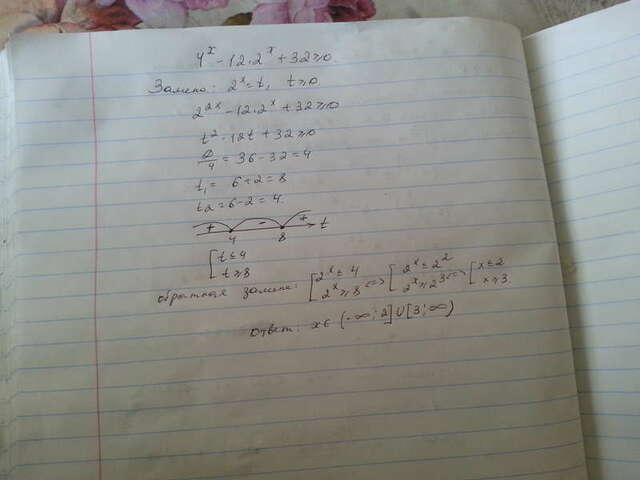 4^x - 12·2^x + 32 ≥ 0
Замена: 2^x = t, t ≥ 0
2^2x - 12·2^x + 32 ≥ 0
t² - 12t + 32 ≥ 0
D/4 = 36 - 32 = 4
t₁ = 6 + 2 = 8
t₂ = 6 - 2 = 4
+ - + t
4 8
[ t ≤ 4
t ≥ 8
обратная замена: [ 2^x ≤ 4 <=> [ 2^x ≤ 2² <=> [ x ≤ 2
2^x ≥ 8 2^x ≥ 2³ x ≥ 3
ответ: x ∈ (-∞; 2] ∪ [3; ∞)